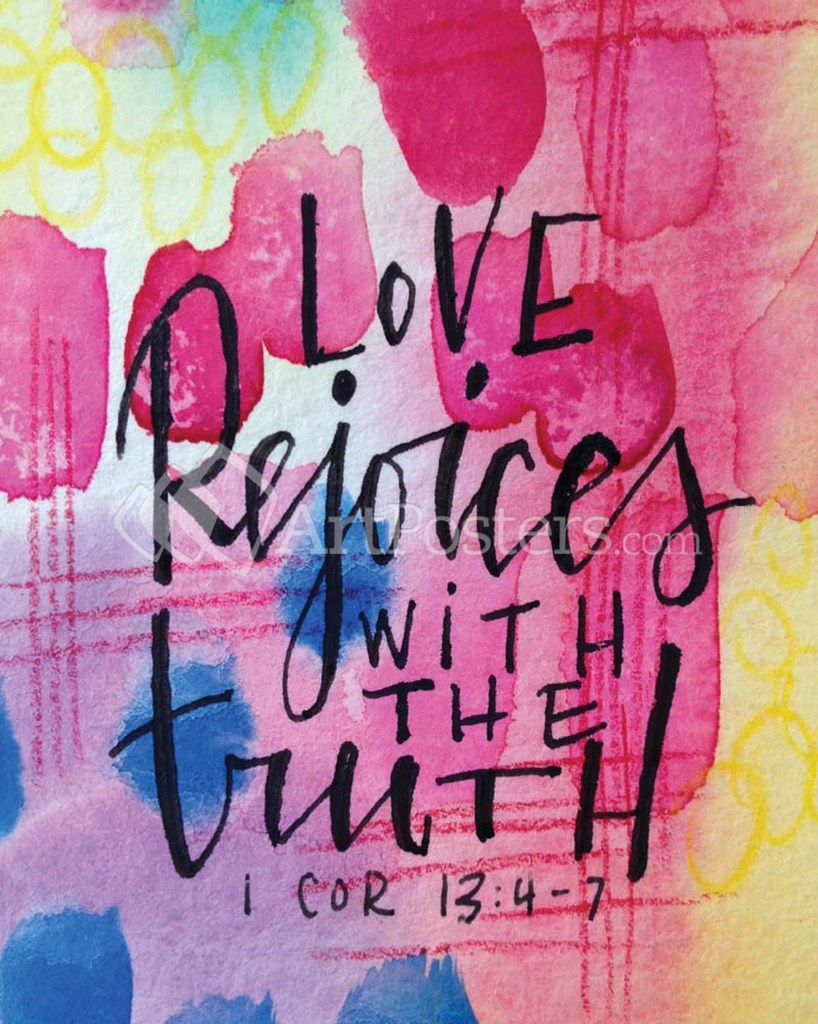 LOVE
Rejoices
ArtPosters.com
WiTH
THE
truTH
1 COR 13:4-7